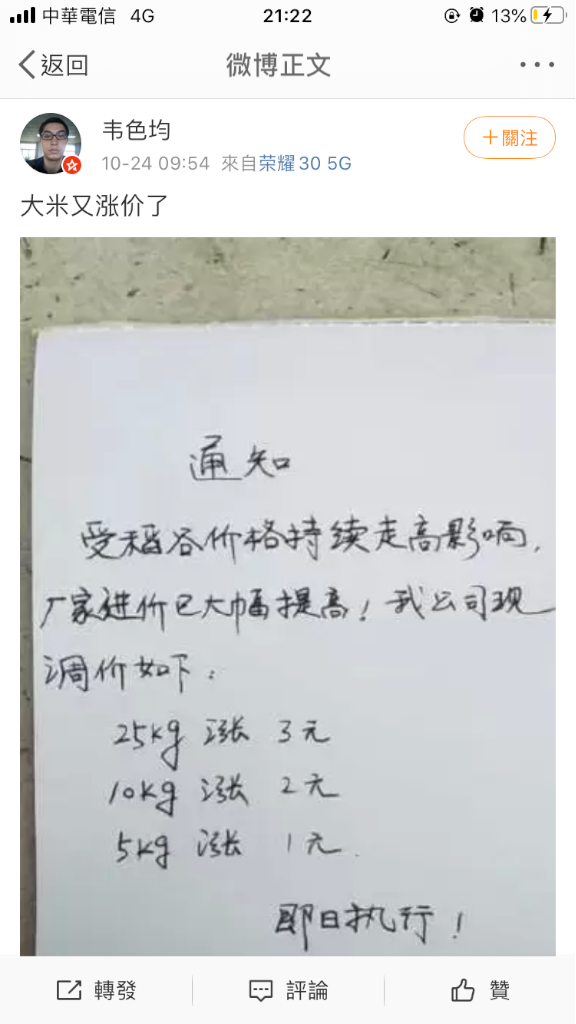 中華電信 4G 21:22 13%
返回 微博正文
韦色均
+關注
10-24 09:54 來自荣耀30 5G
大米又涨价了
通知
受稻谷价格持续走高影响,
厂家进价已大幅提高! 我公司现
调价如下:
25kg 涨 3元
10kg 涨 2元
5kg 涨 1元.
即日执行!
轉發 評論 贊